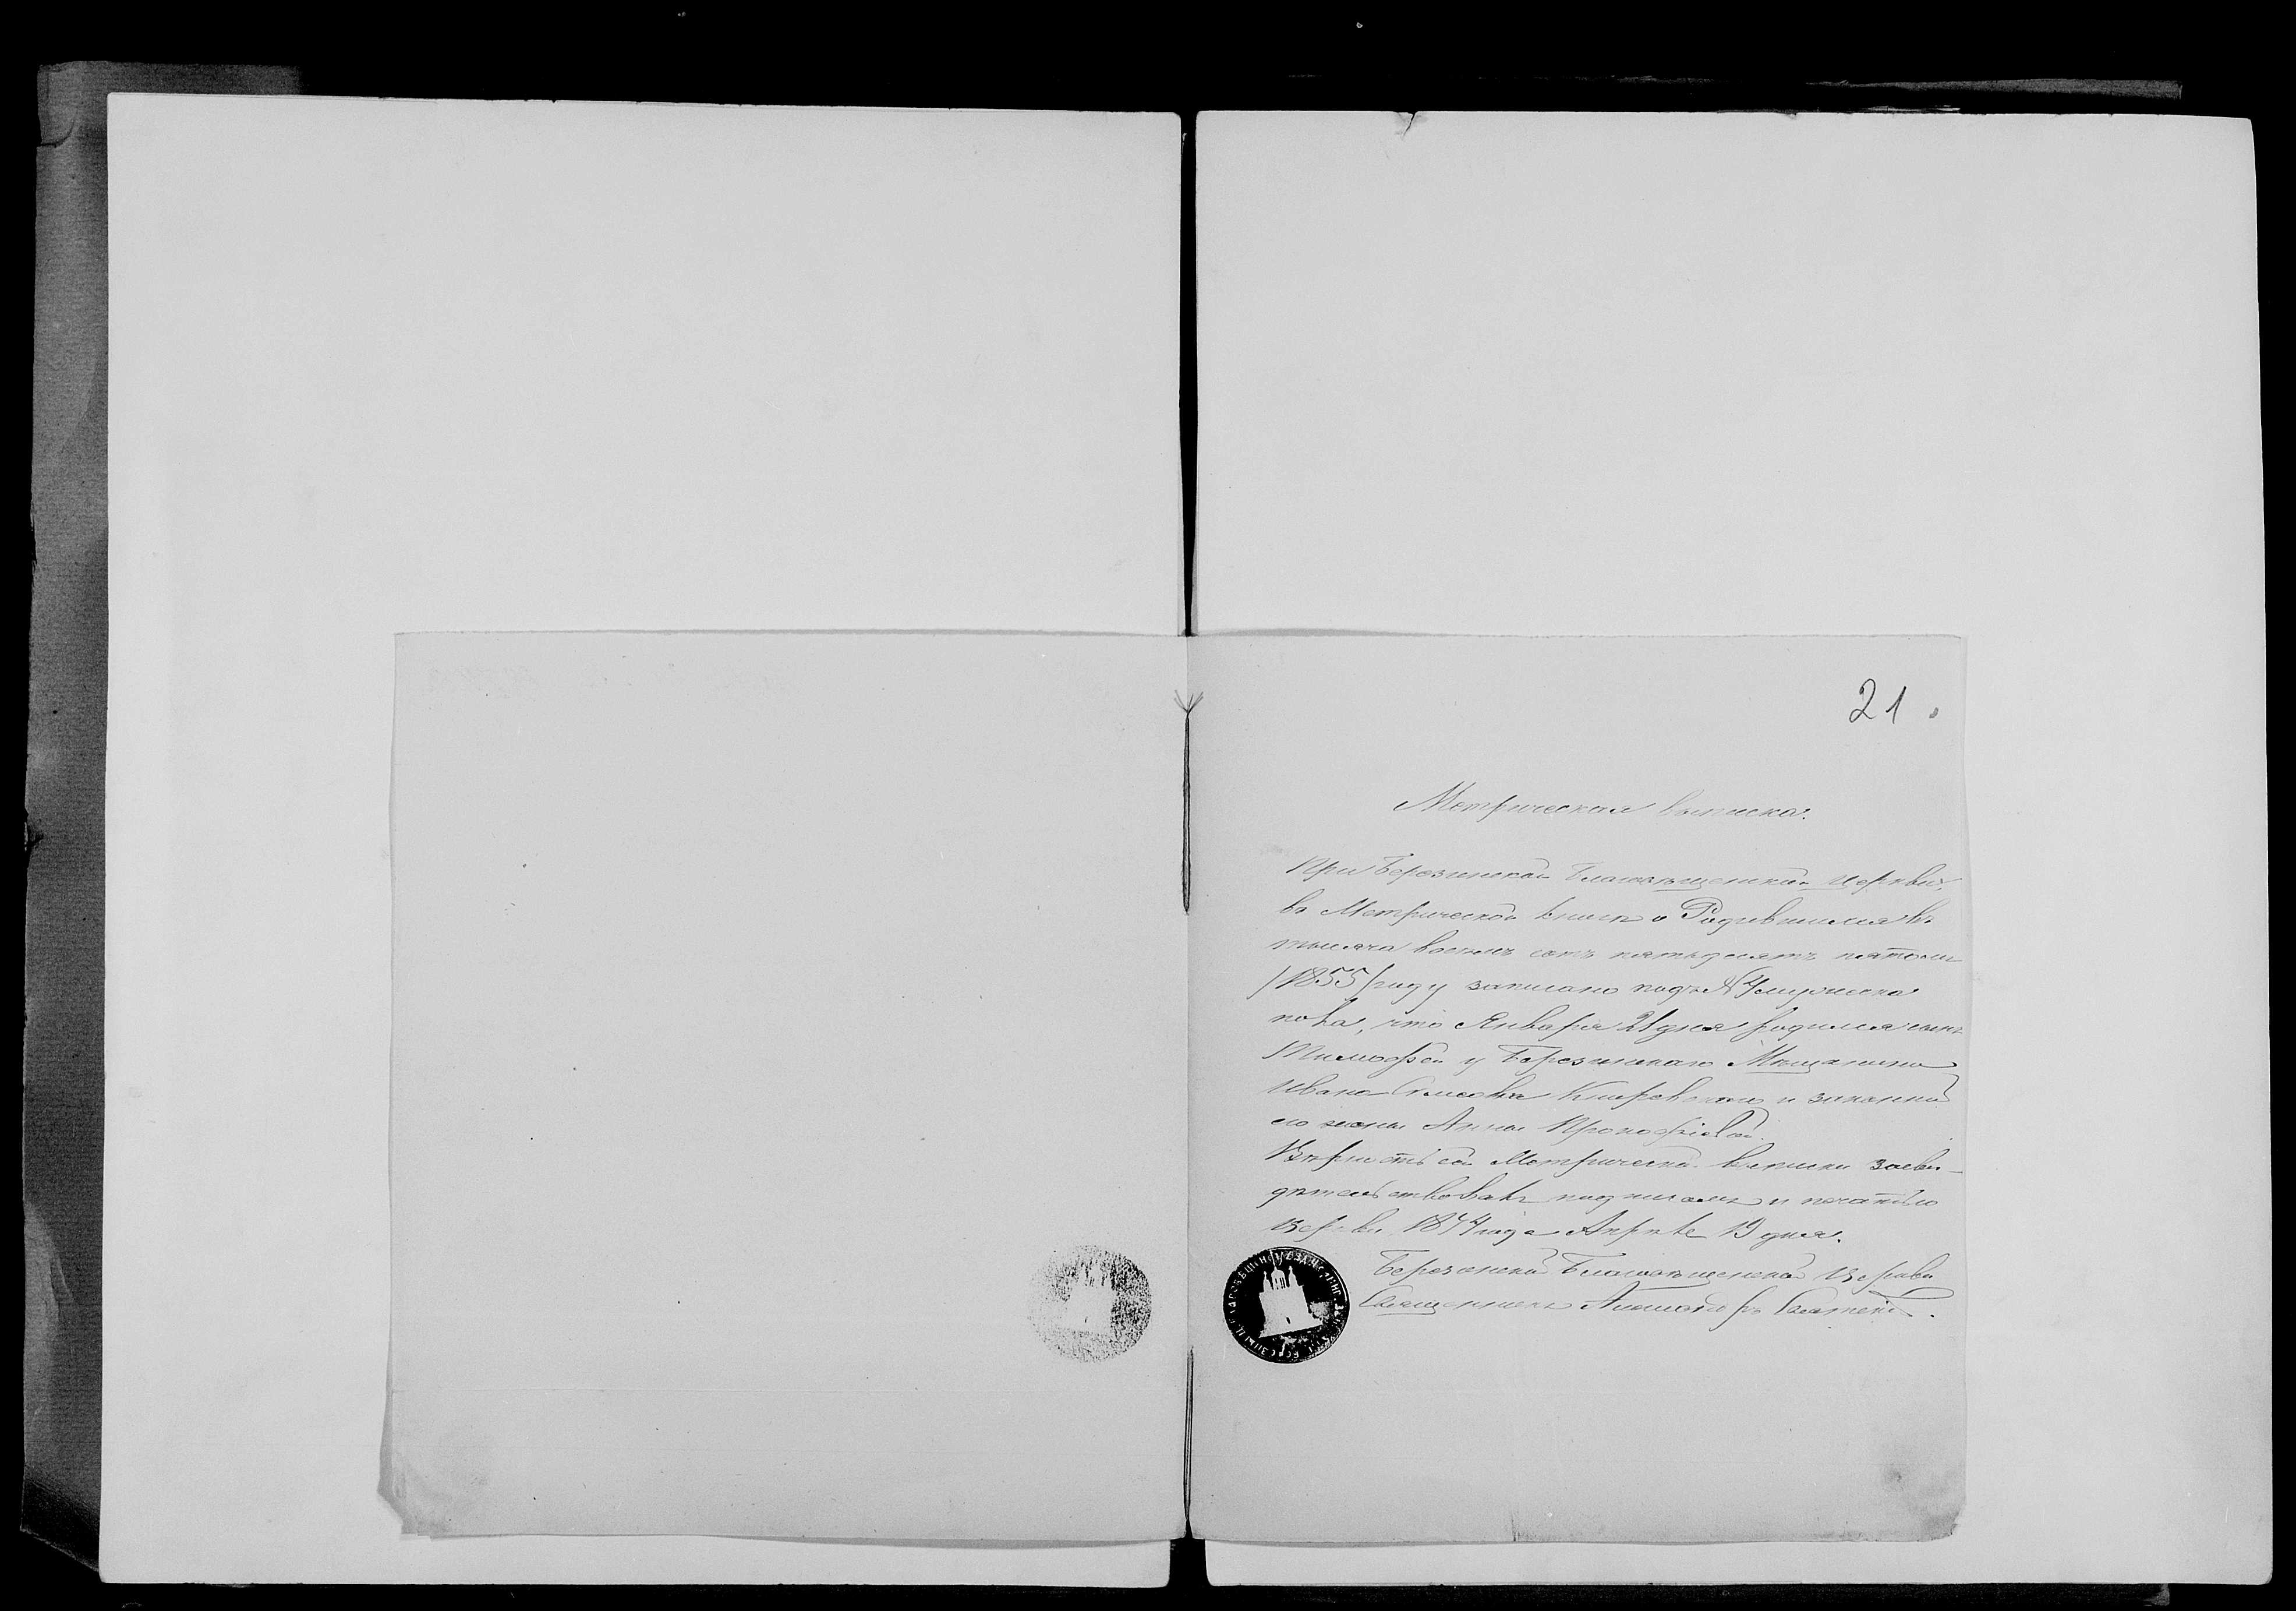 21.
Метрическая выписка.
При Березинской Благовѣщенской церкви,
въ Метрической книгѣ о Родившихся въ
тысяча восемь сотъ пятьдесятъ пятомъ
/1855/ году записано подъ № 4 мужеска
пола, что Января 21 дня родился сынъ
Тимофей у Березинскаго Мѣщанина
Ивана и законной
его жены Анны Прокофіевой.
Вѣрность сей Метрической выписки засви-
дѣтельствовать подписомъ и печатью
церкви 1874 года Апрѣля 19 дня.
Березинской Благовѣщенской церкви
Священникъ